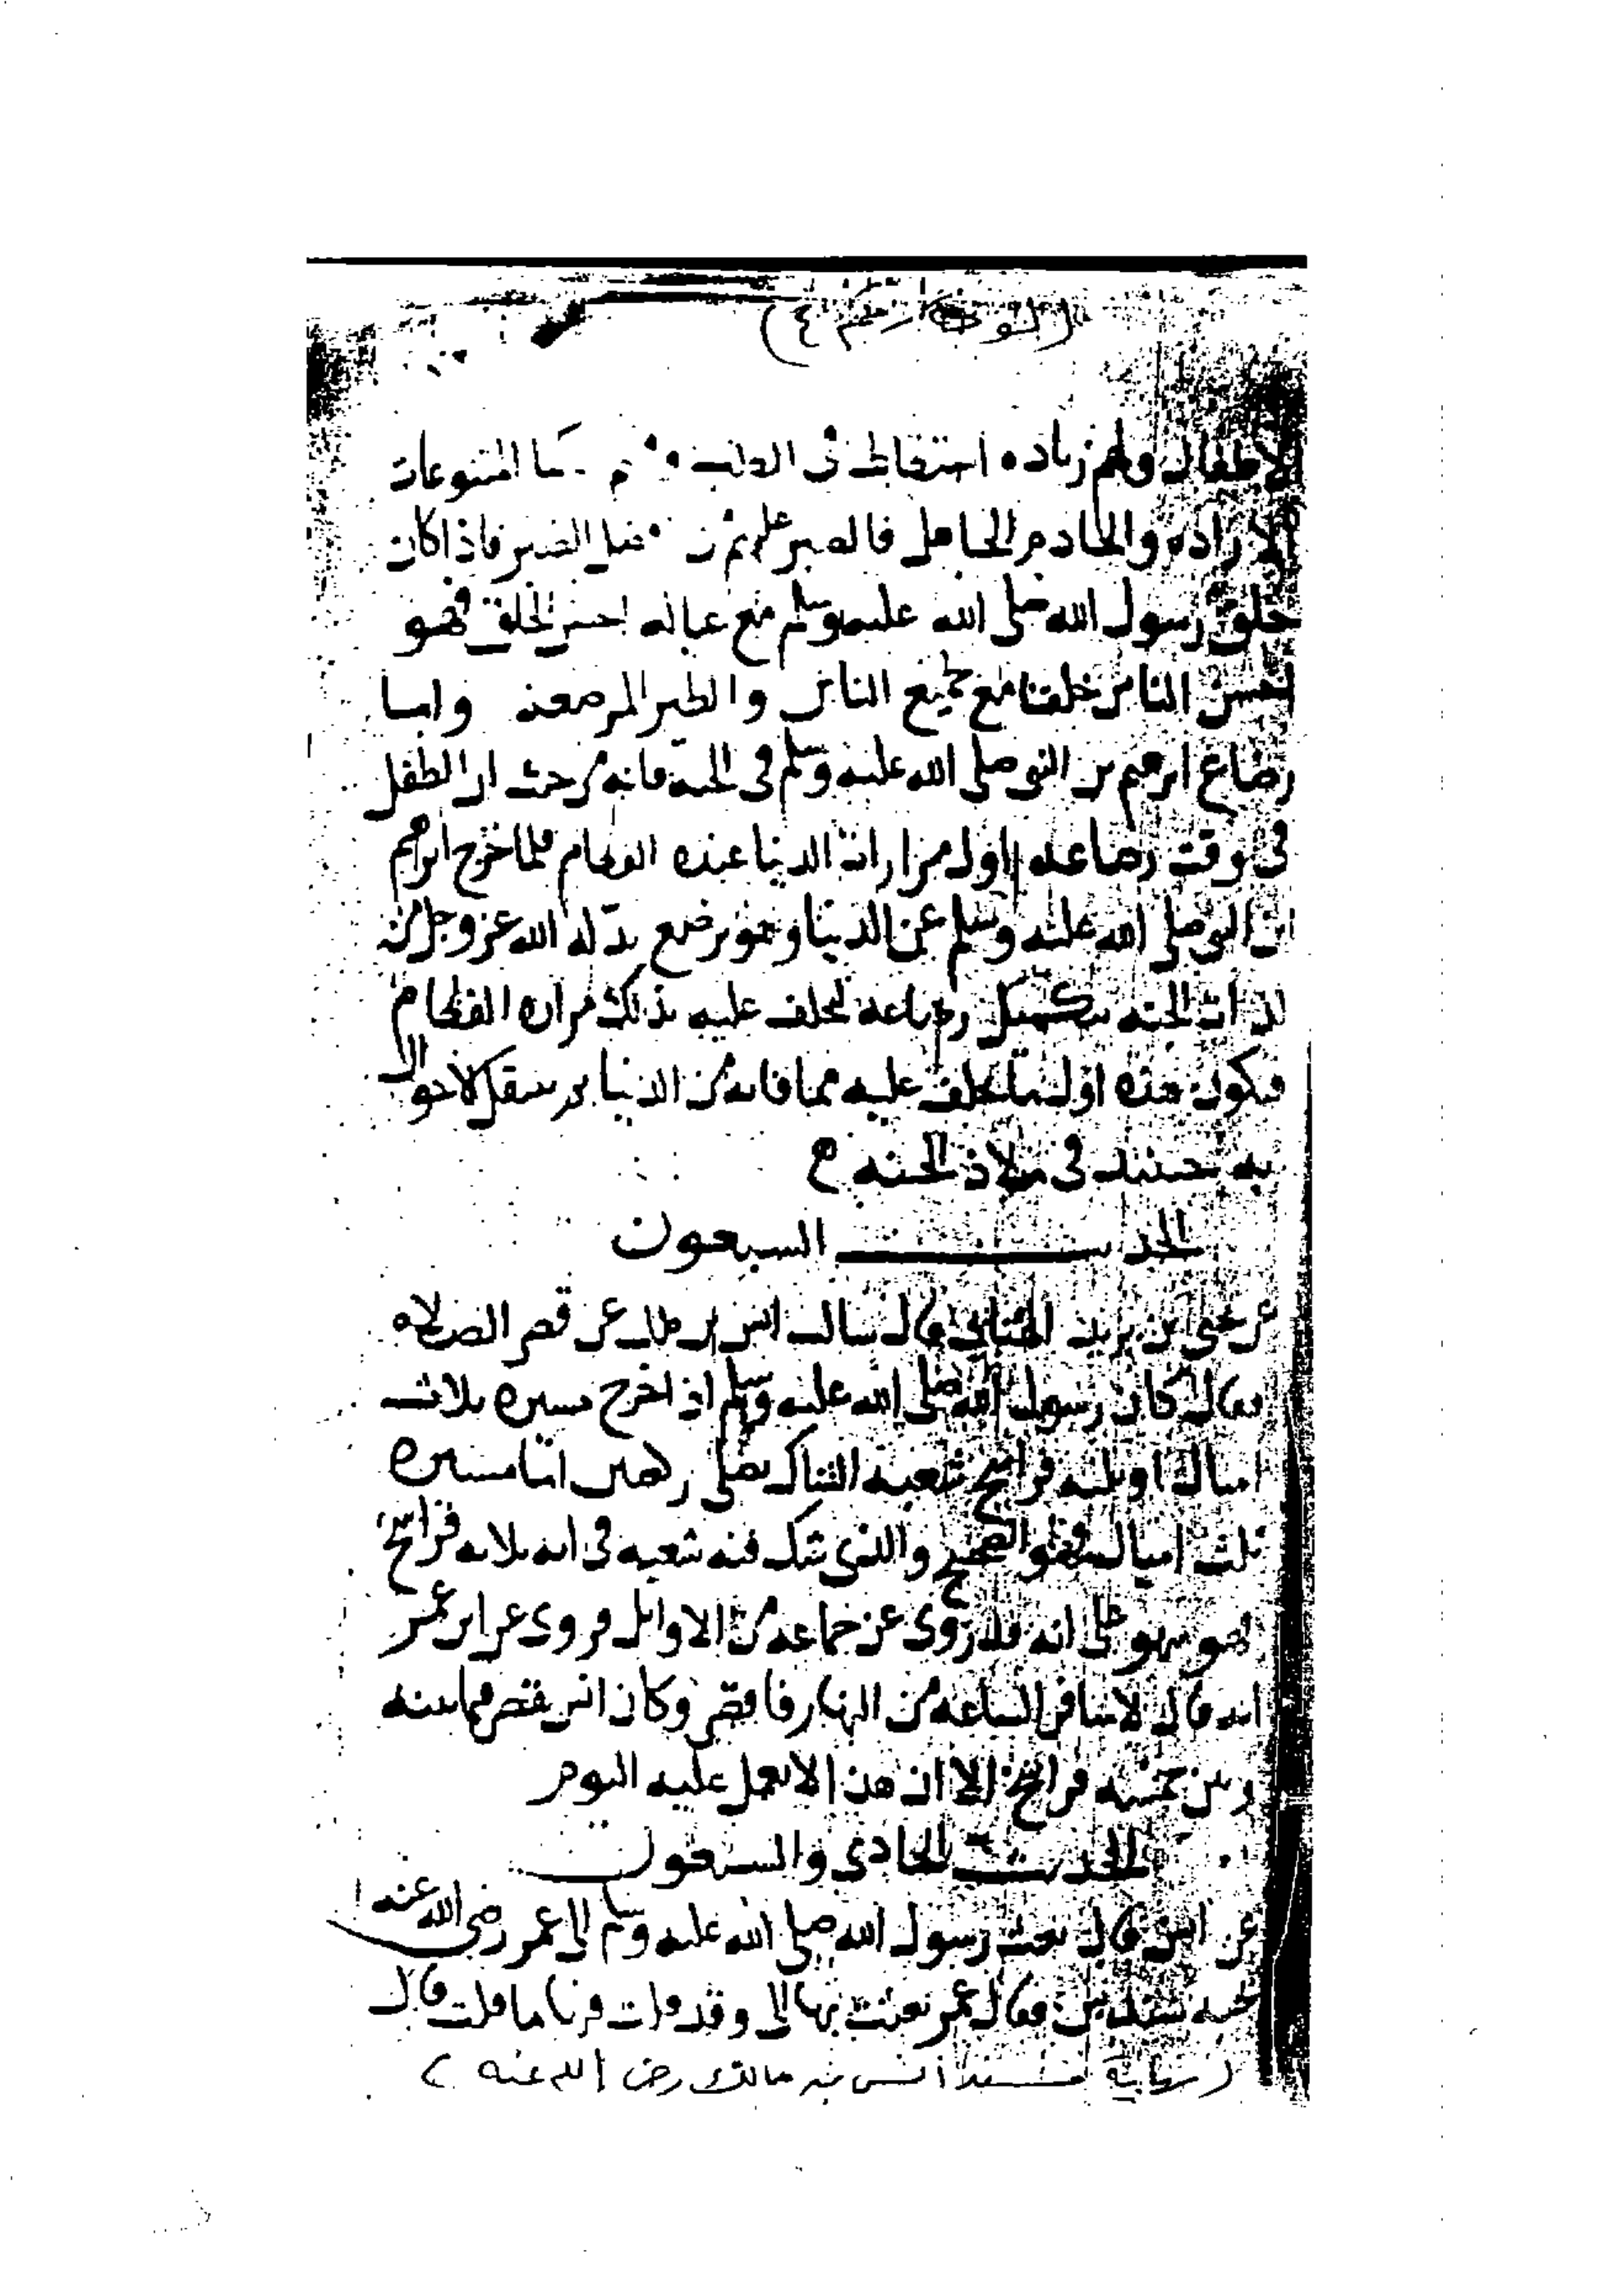 (لوحة رقم ٤)
الاطفال ولهم زياده احتفاظ في القلب المتنوعات
الاراده والخادم الجاهل فالصبر عليهم من افضل الصبر فاذا كان
خلق رسول الله صلى الله عليه وسلم مع عياله احسن الخلق فهو
احسن الناس خلقا مع جميع الناس والظير المرضعه واما
رضاع ابرهيم بن النبي صلى الله عليه وسلم في الجنه فانه من حيث ان الطفل
في وقت رضاعه اول مرارات الدنيا عنده الفطام فلما خرج ابرهيم
ابن النبي صلى الله عليه وسلم عن الدنيا وهو يرضع الله عز وجل من
لذات الجنه رضاعه لخلف عليه بذلك مراره الفطام
فيكون هذه اول ما يخلف عليه مما فاته من الدنيا ثم ينتقل الاحوال
به حينئذ في ملاذ الجنه
الحديث السبعون
عن يحيى بن يزيد الهنائي قال سالت انس بن مالك عن قصر الصلاه
فقال كان رسول الله صلى الله عليه وسلم اذا خرج مسيره ثلاثه
اميال او ثلثه فراسخ شعبه الشاك يصلي ركعتين اما مسيره
ثلث اميال فهو الصحيح والذي شك فيه شعبه في انه ثلاثه فراسخ
فهو سهو على انه قد روى عن جماعه من الاوايل فروى عن ابن عمر
انه قال لاسافر الساعه من النهار فاقصر وكان انس يقصر فيما بينه
وبين خمسه فراسخ الا ان هذا لا يعمل عليه اليوم
الحديث الحادي والسبعون
عن انس قال بعث رسول الله صلى الله عليه وسلم الى عمر رضي الله عنه
بجبه سندس فقال عمر بعثت بها الي وقد قلت فيها ما قلت قال
(نهاية مسند أنس بن مالك رضي الله عنه)